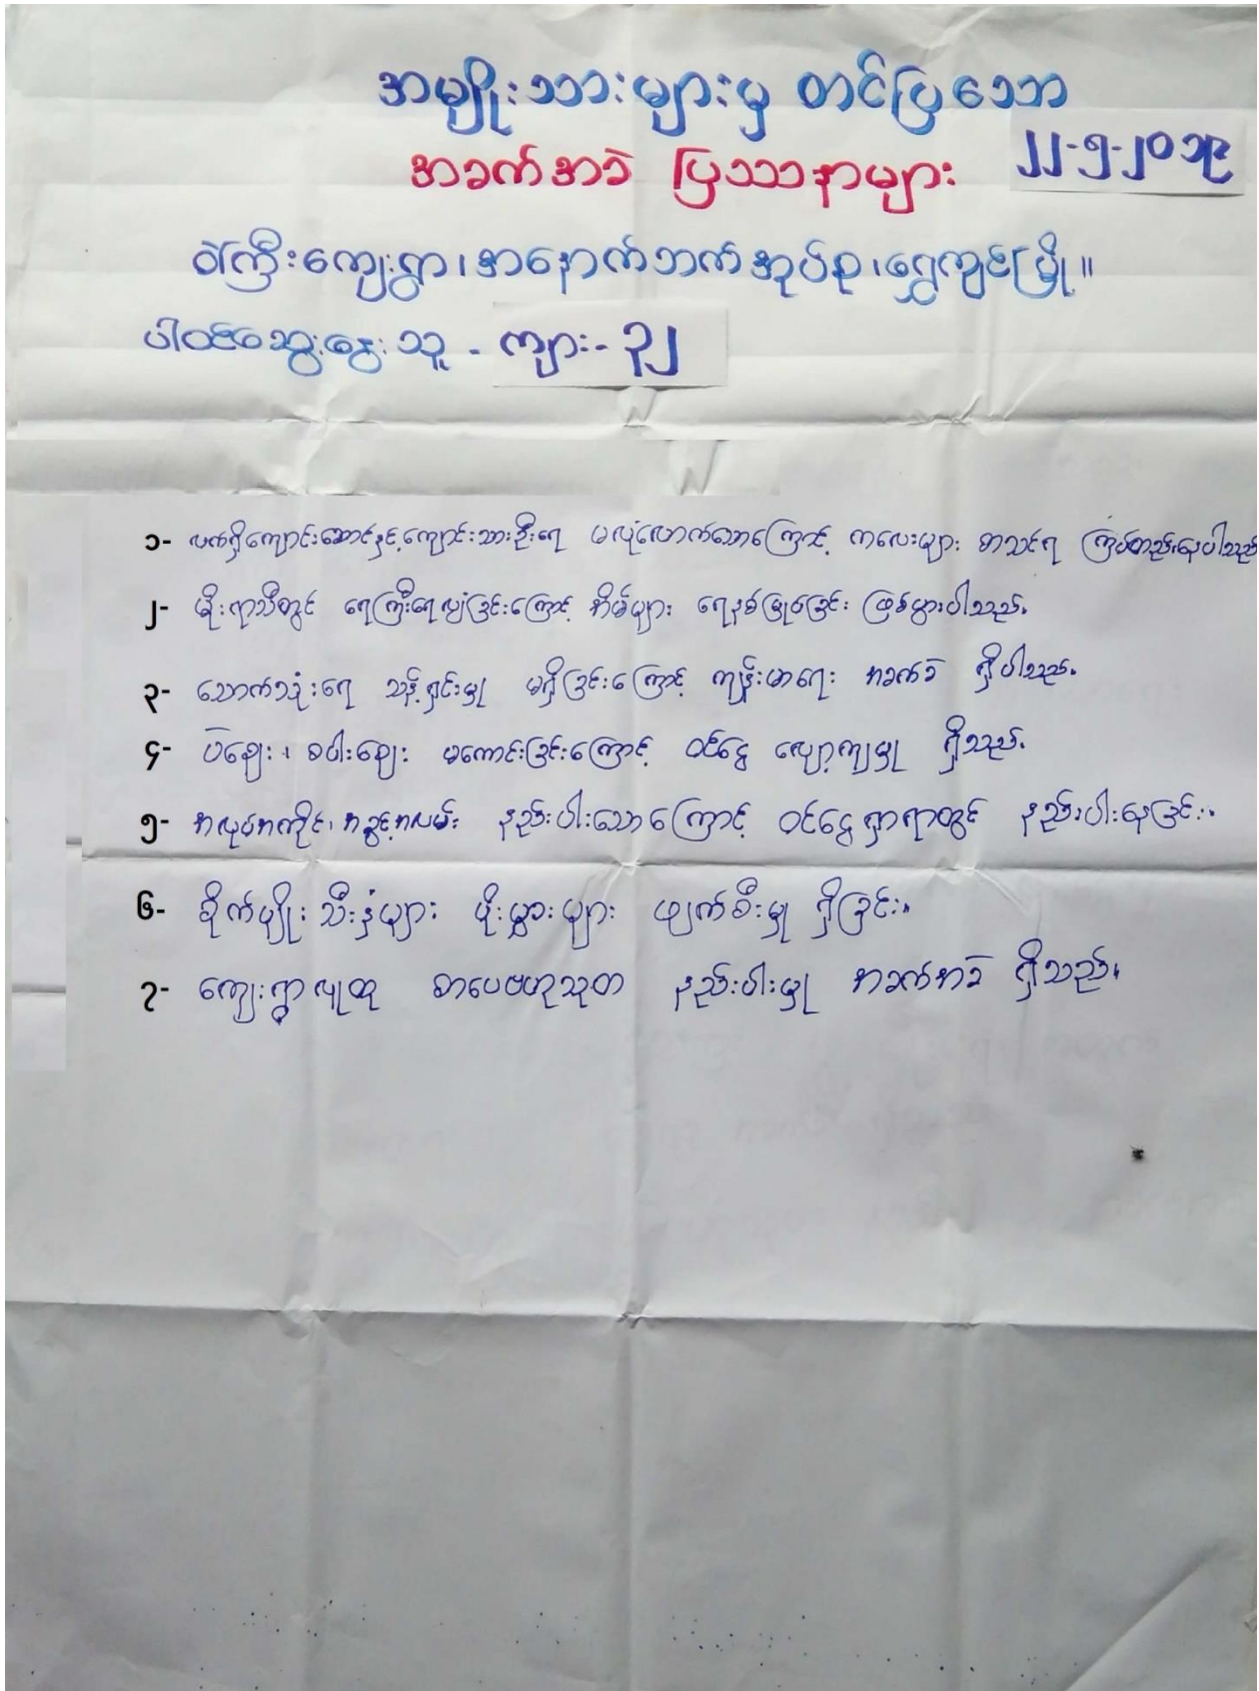 အမျိုးသားများမှ တင်ပြသော
အခက်အခဲ ပြဿနာများ
၂၂-၅-၂၀၁၉
ဝဲကြီးကျေးရွာ၊ အနောက်ဘက်အုပ်စု၊ ရွှေကျင်မြို့။
ပါဝင်ဆွေးနွေးသူ - ကျား - ၃၂
၁- လက်ရှိကျောင်းဆောင်နှင့်ကျောင်းသားဦးရေ မလုံလောက်သောကြောင့် ကလေးများ စာသင်ရ ကြပ်တည်းနေပါသည်
၂- မိုးရာသီတွင် ရေကြီးရေလျှံခြင်းကြောင့် အိမ်များ ရေနစ်မြုပ်ခြင်း ဖြစ်ပွားပါသည်။
၃- သောက်သုံးရေ သန့်ရှင်းမှု မရှိခြင်းကြောင့် ကျန်းမာရေး အခက်ခဲ ရှိပါသည်။
၄- ပဲစျေး၊ စပါးစျေး မကောင်းခြင်းကြောင့် ဝင်ငွေ လျော့ကျမှု ရှိသည်။
၅- အလုပ်အကိုင်၊ အခွင့်အလမ်း နည်းပါးသောကြောင့် ဝင်ငွေရှာရာတွင် နည်းပါးနေခြင်း။
၆- စိုက်မျိုးသီးနှံများ ပိုးမွှားများ ဖျက်စီးမှု ရှိခြင်း။
၇- ကျေးရွာလူထု စာပေဗဟုသုတ နည်းပါးမှု အခက်အခဲ ရှိသည်။